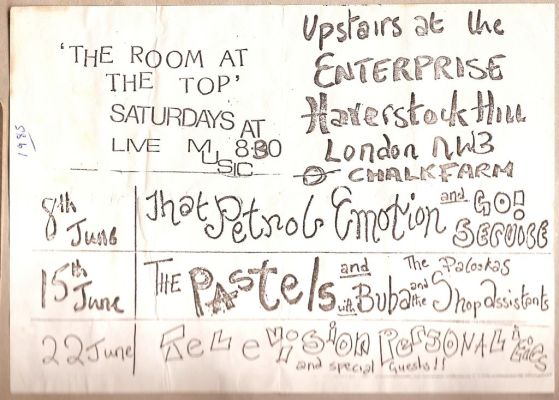 'THE ROOM AT
THE TOP'
SATURDAYS AT
LIVE MUSIC 8·30
1985
Upstairs at the
ENTERPRISE
Haverstock Hill
London NW3
CHALKFARM
8th June
That Petrol Emotion and GO! SERVICE
15th June
THE PASTELS and The Palookas
with Buba and the Shop assistants
22 June
TELEVISION PERSONALITIES
and special Guests!!